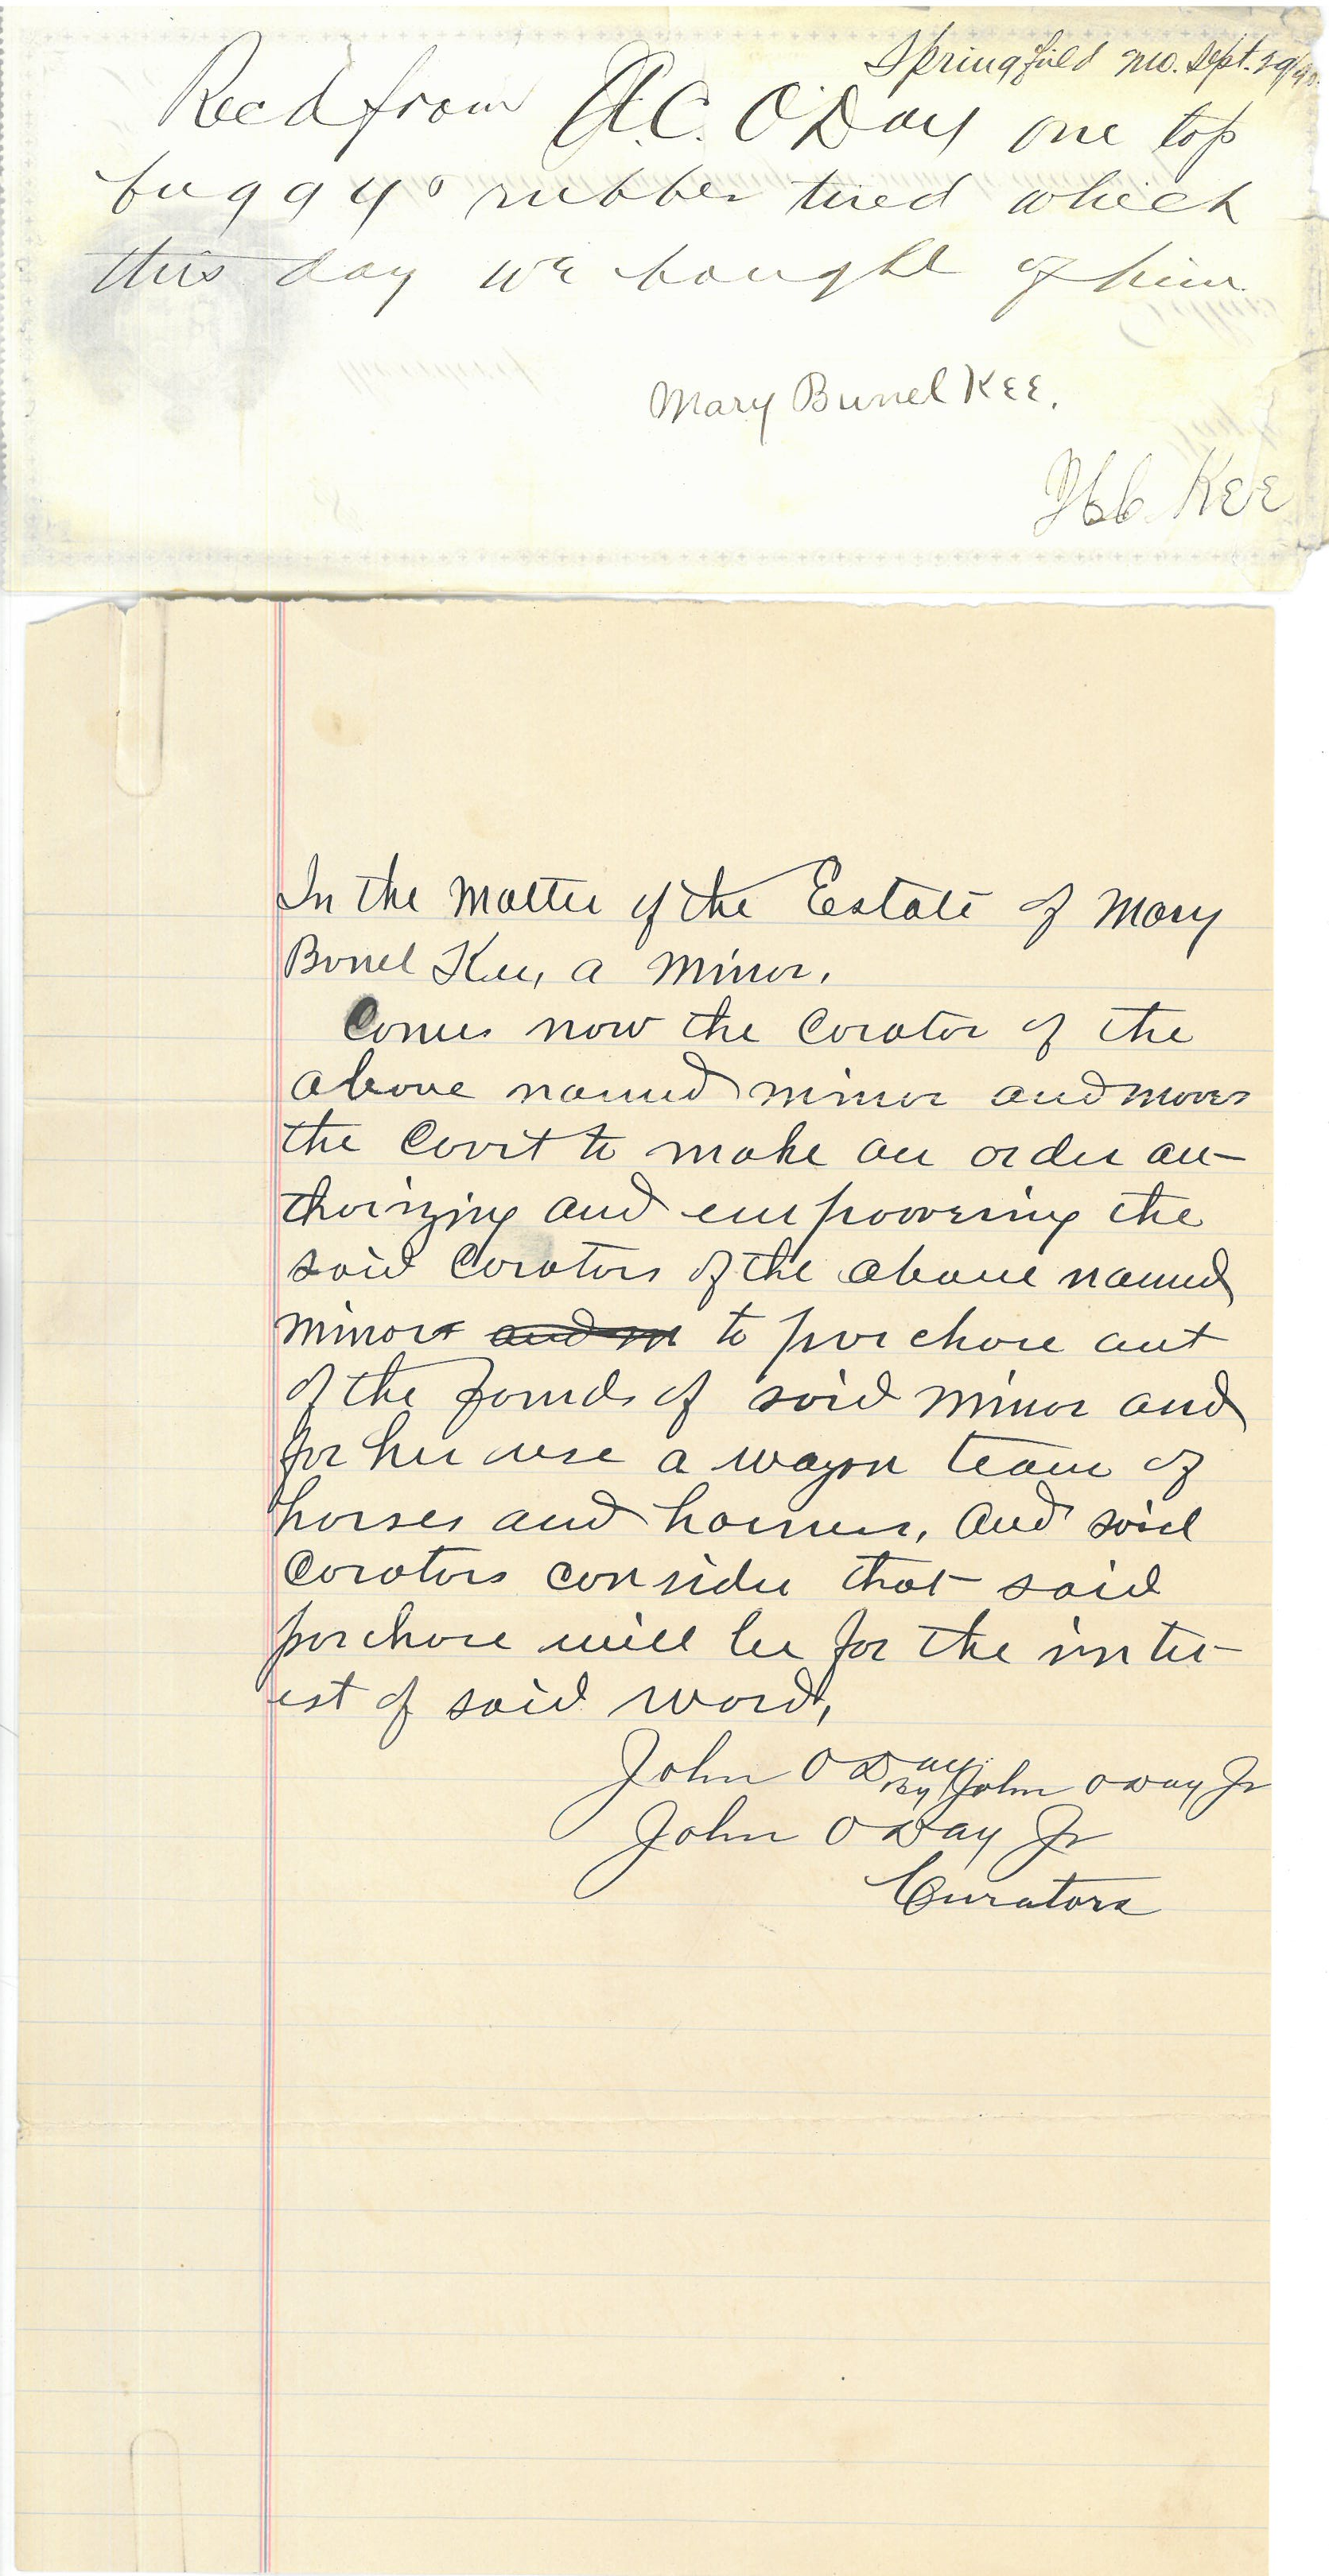 Springfield Mo. Sept. 29/90.
Recd from A.C. O'Day one top
buggy rubber tired which
this day we bought of him
Mary Bunel Kee.
Kee
In the Matter of the Estate of Mary
Bunel Kee, a Minor.
Comes now the Curator of the
above named minor and moves
the Court to make an order au-
thorizing and empowering the
said Curators of the above named
minor to purchase out
of the funds of said minor and
for her use a wagon team of
horses and harness, And said
Curators consider that said
purchase will be for the inter-
est of said ward,
John O Day by John O Day Jr
John O Day Jr
Curators